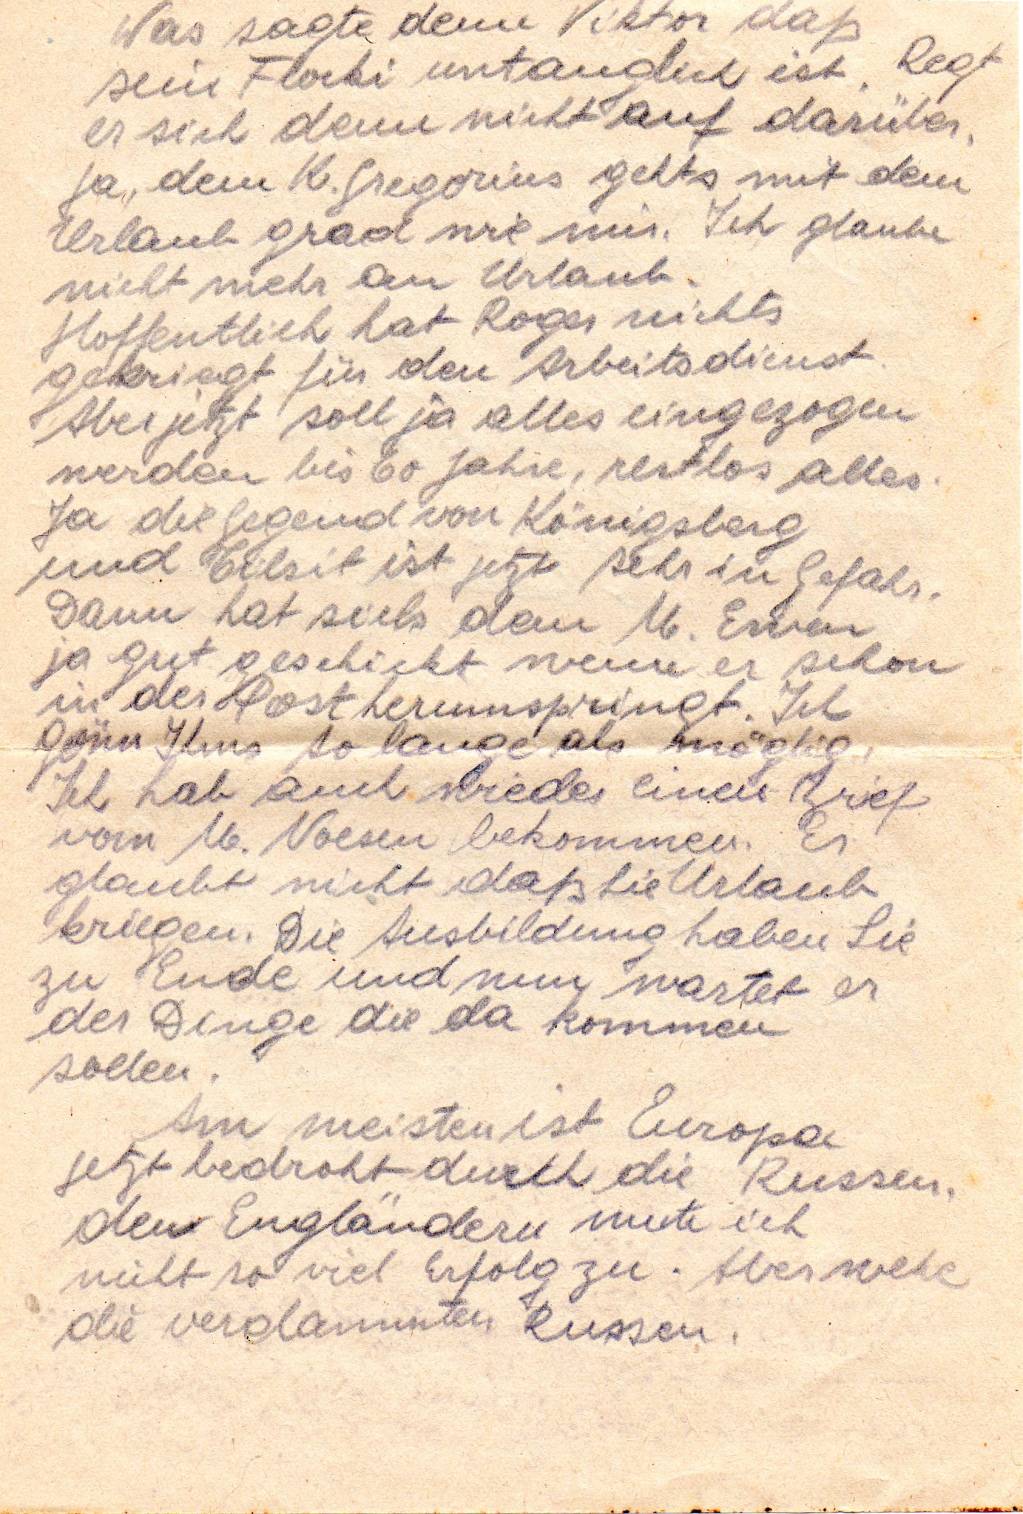 Was sagte denn Viktor daß
sein Flocki untauglich ist. Regt
er sich denn nicht auf darüber.
Ja, dem K. Gregorius gehts mit dem
Urlaub grad wie mir. Ich glaube
nicht mehr an Urlaub.
Hoffentlich hat Roger nichts
gekriegt für den Arbeitsdienst.
Aber jetzt soll ja alles eingezogen
werden bis 60 Jahre, restlos alles.
Ja die Gegend von Königsberg
und Tilsit ist jetzt sehr in Gefahr.
Dann hat sichs dem M. Erwin
ja gut geschickt wenn er schon
in der Post herumspringt. Ich
gönn Ihms so lange als möglig.
Ich hab auch wieder einen Brief
vom M. Noesen bekommen. Er
glaubt nicht daß Sie Urlaub
kriegen. Die Ausbildung haben Sie
zu Ende und nun wartet er
der Dinge die da kommen
sollen.
Am meisten ist Europa
jetzt bedroht durch die Russen.
den Engländern mute ich
nicht so viel Erfolg zu. Aber wehe
die verdammten Russen.